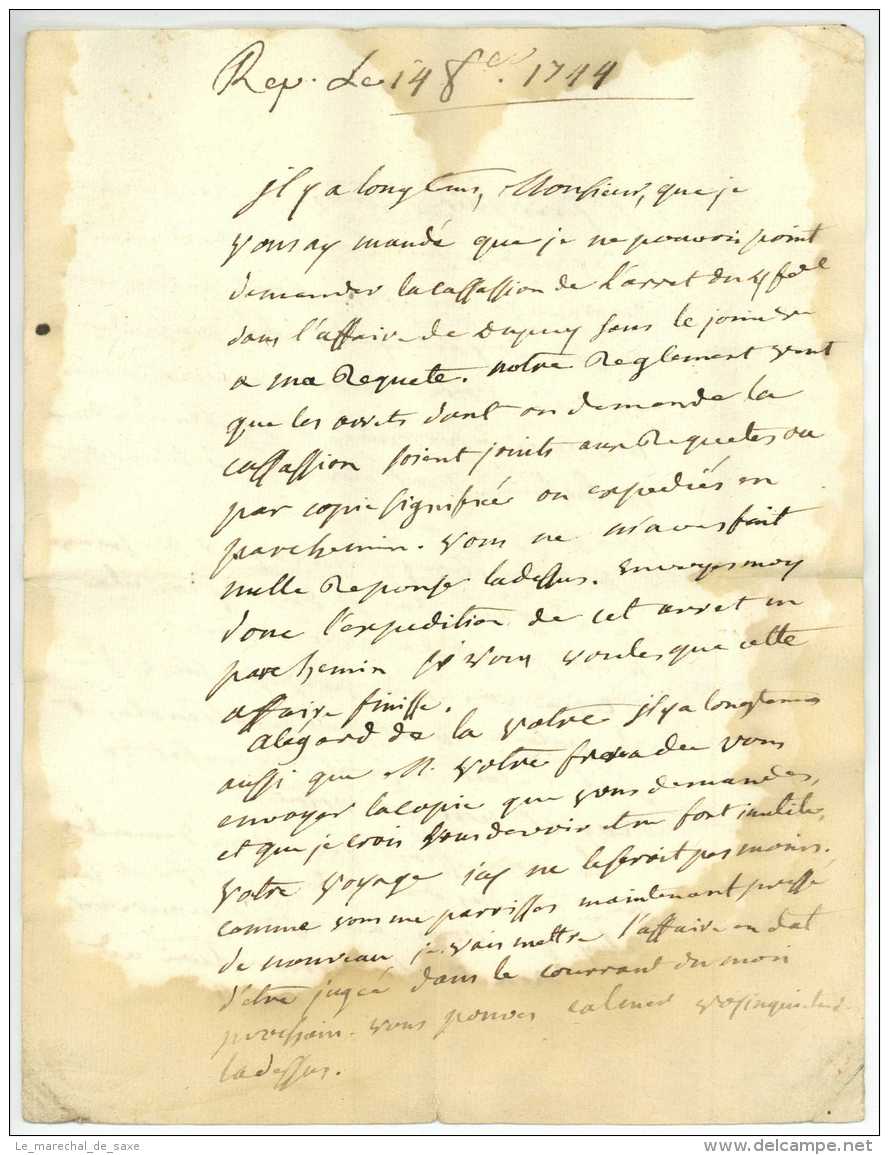 Rep. le 14 8re. 1744
il y a longtems, Monsieur, que je
vous ay mandé que je ne pouvois point
demander la cassassion de l'arret du
dans l'affaire de Dupuy sans le joindre
a ma Requete. notre Reglement veut
que les arrets dont on demande la
cassassion soient joints aux Requetes ou
par copie signifiée ou expediés en
parchemin. vous ne m'aves fait
nulle Reponse ladessus. envoyes moy
donc l'expedition de cet arret en
parchemin si vous voules que cette
affaire finisse.
a légard de la votre il y a longtems
aussi que M. votre frere a deu vous
envoyer la copie que vous demandes,
et que je crois vous devoir etre fort inutile,
votre voyage icy ne le seroit pas moins.
comme vous me parrisses maintenant pressé
de nouveau je vais mettre l'affaire en etat
d'etre jugée dans le courrant du mois
prochain. vous pouves calmer vos inquietudes
ladessus.
Le_marechal_de_saxe
www.delcampe.net